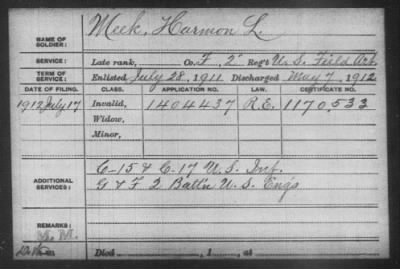 NAME OF SOLDIER: Meek, Harmon L.
SERVICE: Late rank, Co. F, 2" Reg't U.S. Field Art.
TERM OF SERVICE: Enlisted July 28, 1911 Discharged May 7, 1912
DATE OF FILING. CLASS. APPLICATION NO. LAW. CERTIFICATE NO.
1912 July 17 Invalid, 1404437 R.E. 1170,533
Widow,
Minor,
ADDITIONAL SERVICES: C-15 & C-17 U.S. Inf.
G & F 2 Batt'n U.S. Eng's
REMARKS:
M. M.
Died , 1 , at